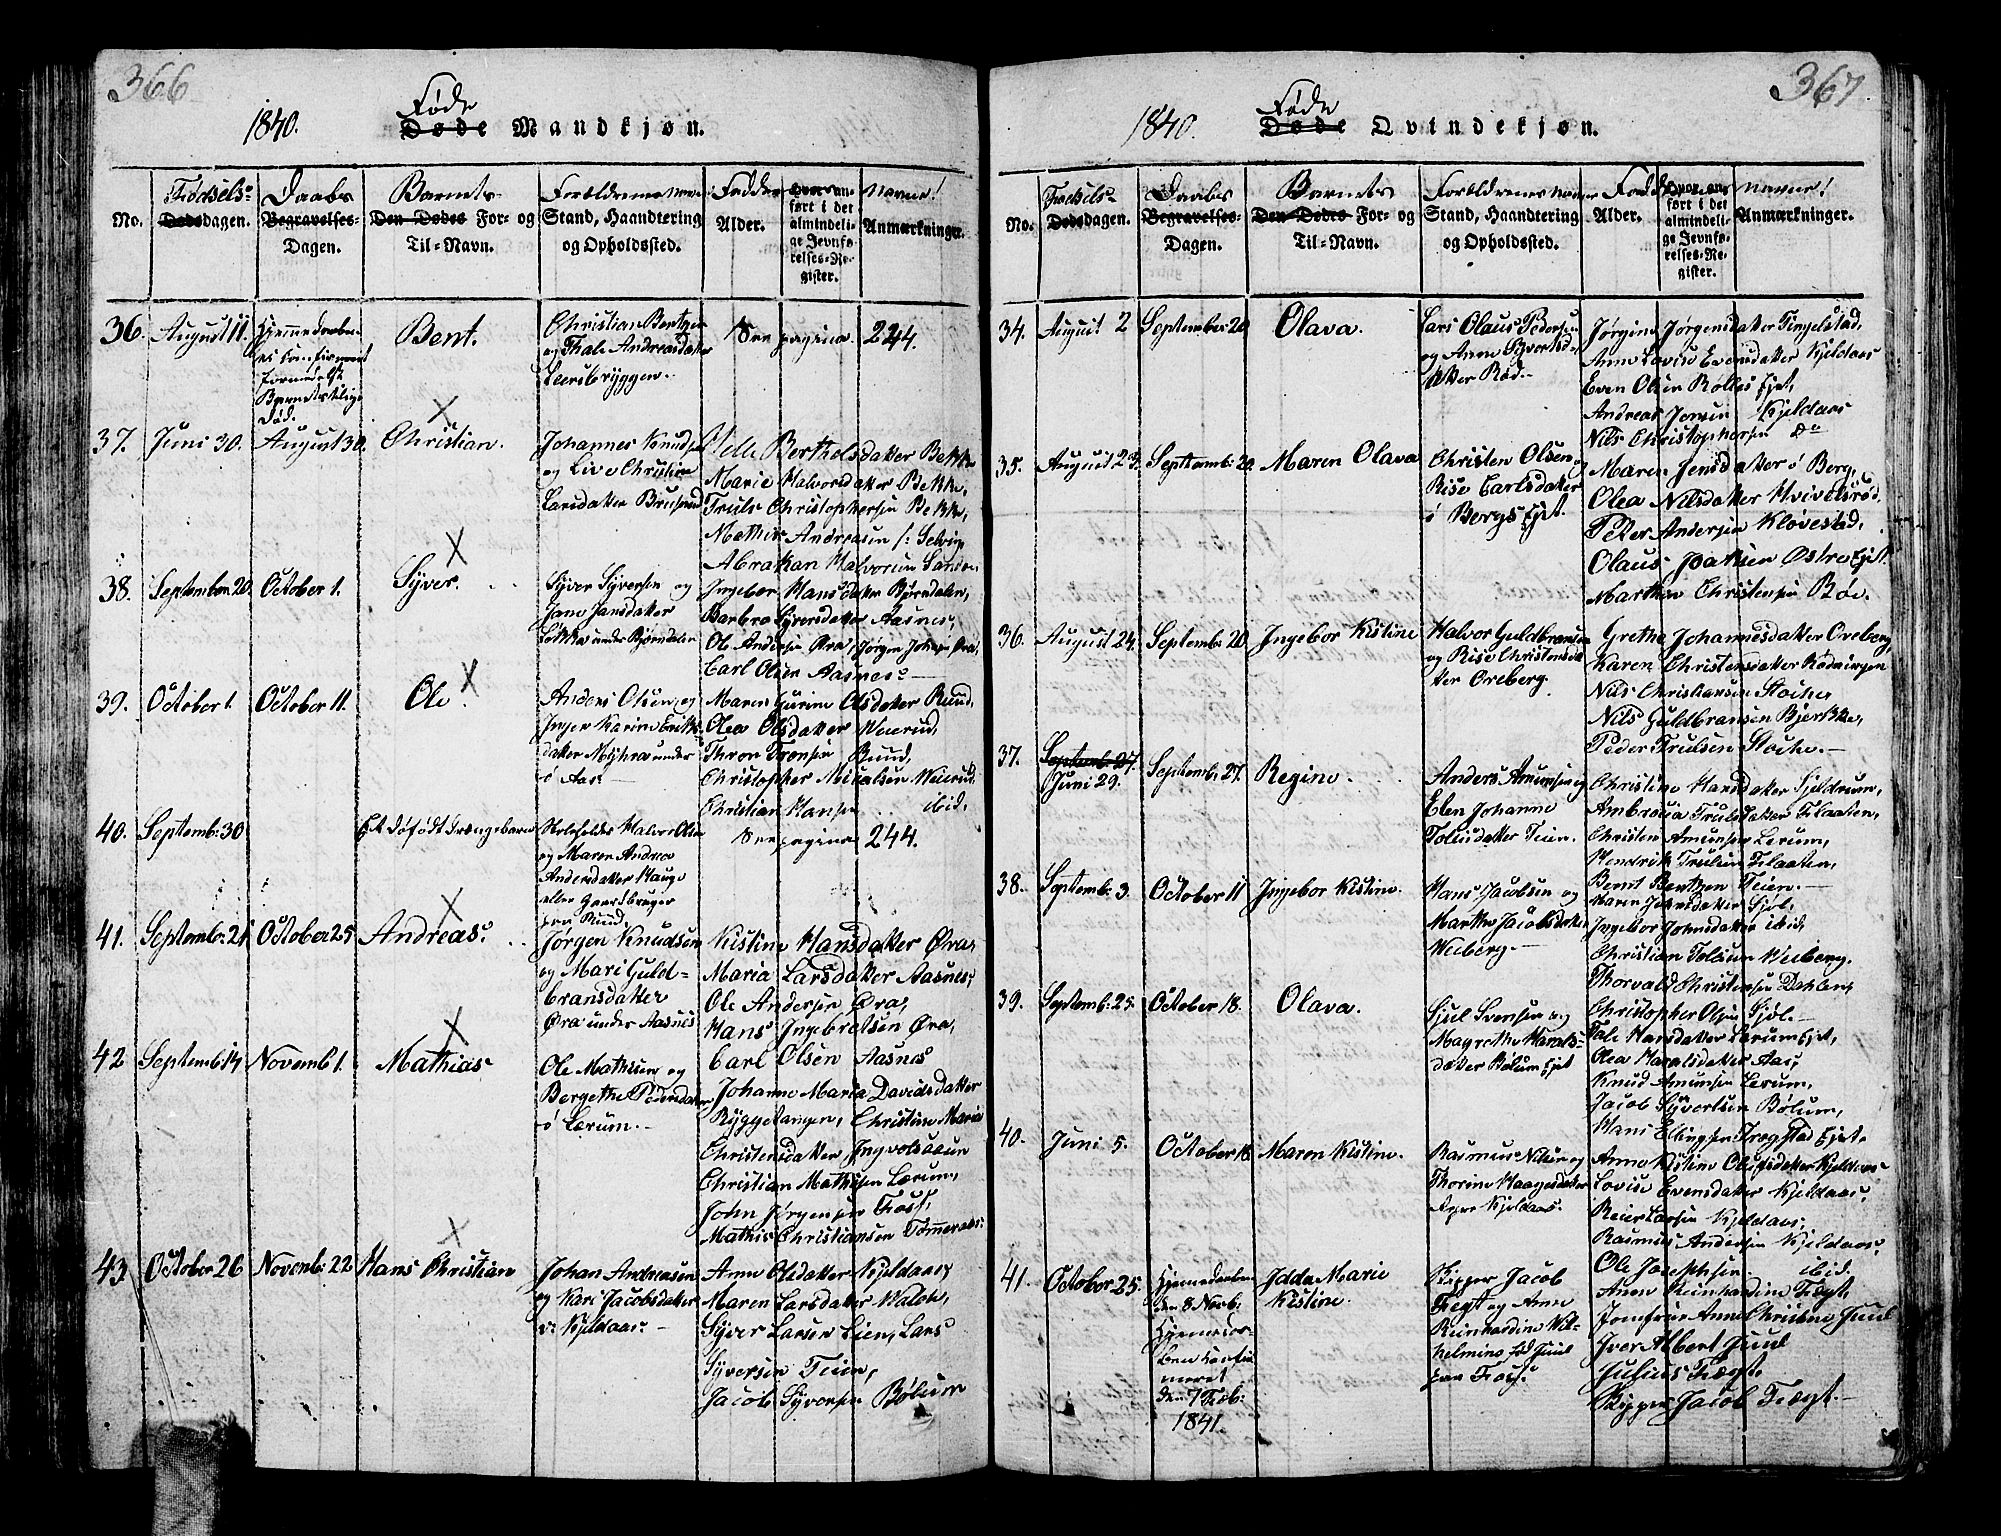 366
1840.
Føde
Døde Mandkjøn.
No.
Fødsels-
Dødsdagen.
Daabs
Begravelses-
Dagen.
Barnets
Den Dødes For- og
Til-Navn.
Forældrenes Navne
Stand, Haandtering
og Opholdssted.
Fadder
Alder.
Hvor an-
ført i det
almindeli-
ge Jevnfø-
relses-Re-
gister.
Navne!
Anmærkninger.
36. August 11. Hjemmedøbt
Bent.
Christian Bentzen
og Thale Andreasdatter
Leersbryggen.
See pagina 224.
Barnets
Død.
37. Juni 30. August 30. Christian.
Johannes Knudsen
og Live Christine
Larsdatter
Helle Bertholsdatter Bekke,
Marie Halvorsdatter Bekke,
Truls Christophersen Bekke,
Mathis Andreasen
Abraham Halvorsen
38. September 20. October 1. Syver.
Syver Syversen og
Jane Jansdatter
Løkka under Bjørndalen
Ingebor Hansdatter Bjørndalen,
Barbro Syversdatter Aasnes,
Ole Andersen Øra, Jørgen Johnsen Øra,
Carl Olsen Aasnes.
39. October 1. October 11. Ole.
Anders Olsen og
Inger Karine Eriks-
datter Myhra under
Aas
Maren Gurine Olsdatter Rund,
Olea Olsdatter Weierud,
Thron Tronsen Rund,
Christopher Micalsen Weierud.
Christian Hansen ibid.
40. Septemb: 30 Et dødfødt Drengebarn
Halvor Olsen
og Maren Andrea
Andersdatter Hauge
eller Gaardbruger
Rund.
See pagina 244.
41. Septemb: 21 October 25 Andreas.
Jørgen Knudsen
og Mari Guld-
bransdatter
Øra under Aasnes
Kistine Hansdatter Øra,
Maria Larsdatter Aasnes,
Ole Andersen Øra,
Hans Ingebretsen Øra,
Carl Olsen Aasnes
42 Septemb: 14 Novemb 1. Mathias.
Ole Mathisen og
Bergethe Pedersdatter
Lærum.
Johanne Maria Davidsdatter
Ryggetangen, Christine Maria
Christensdatter
Christian Mathisen Lærum,
John Jørgensen Foss,
Mathis Christiansen
43. October 26 Novemb: 22 Hans Christian
Johan Andreasen
og Kari Jacobsdatter
Kjeldaas.
Anne Olsdatter Kjeldaas,
Maren Larsdatter
Syver Larsen Lien, Lars
Syversen Teien,
Jacob Syversen Bølum
367
1840.
Føde
Døde Qvindekjøn.
No.
Fødsels-
Dødsdagen.
Daabs
Begravelses-
Dagen.
Barnets
Den Dødes For- og
Til-Navn.
Forældrenes Navne
Stand, Haandtering
og Opholdssted.
Alder.
ført i det
almindeli-
ge Jevnfø-
relses-Re-
gister.
Navne!
Anmærkninger.
34. August 2 September 20 Olava.
Lars Olaus Pedersen
og Anne Syvertsd-
atter Rød.
Jørgine Jørgensdatter Tingelstad,
Anne Lovise Evensdatter Kjeldaas
Even Olsen Rolles Ejet,
Andreas Jonsen Kjeldaas
Nils Christophersen do
35. August 23. Septemb: 20. Maren Olava
Christen Olsen
Rise Carlsdatter
Bergs Ejet.
Maren Jensdatter Berg,
Olea Nilsdatter
Peter Andersen Kløvestad,
Olaus
Marthin Christensen Bøe.
36. August 24. Septemb: 20 Ingebor Kistine
Halvor Guldbransen
og Rise Christensdat
ter Oreberg.
Grethe Johannesdatter Oreberg,
Karen Christensdatter
Nils Christiansen
Nils Guldbransen Bjerkke,
Peder Trulsen
37. Septemb: 27.
Juni 29. Septemb: 27. Regine.
Anders Amunsen og
Elen Johanne
Tolvsdatter Teien.
Christine Hansdatter
Ambrosia Trulsdatter Flaaten,
Christen Amunsen Lerum,
Hendrik Trulsen Flaaten,
Bernt Bentzen Teien.
38. Septemb: 3. October 11 Ingebor Kistine.
Hans Jacobsen og
Marthe Jacobsdatter
Weiberg.
Maren Johnsdatter
Ingebor Johnsdatter ibid,
Christian Tolvsen Weiberg,
Thorvald Christensen Dahlen,
Christopher Olsen
39. Septemb: 25. October 18. Olava.
Gjul Svensen og
Magrethe Harals-
datter Bølum Ejet
Tale Hansdatter Lærum Ejet,
Olea Haralsdatter Aas,
Knud Amunsen Lerum,
Jacob Syvertsen Bølum,
Hans Ellingsen Trægstad Ejet.
40. Juni 5. October 18. Maren Kistine.
Rasmus Nilsen og
Thorine Haagesdatter
Kjeldaas.
Anne Kistine Olufsdatter Kjeldaas,
Lovise Evensdatter Kjeldaas,
Reier Larsen Kjeldaas,
Rasmus Andersen Kjeldaas,
Ole Josephsen. ibid.
41. October 25. Hjemmedøbt
den 8 Novb,
Idda Marie
Kistine.
den 7 Feb:
1841.
Skipper Jacob
Fegt og Anne
Reinhardine Wil-
helmine fød Juul
paa Foss.
Anne Reinhardine Fægt,
Jomfrue Anne Christine Juul
Iver Albert Juul
Julius Fægt.
Skipper Jacob Fægt.